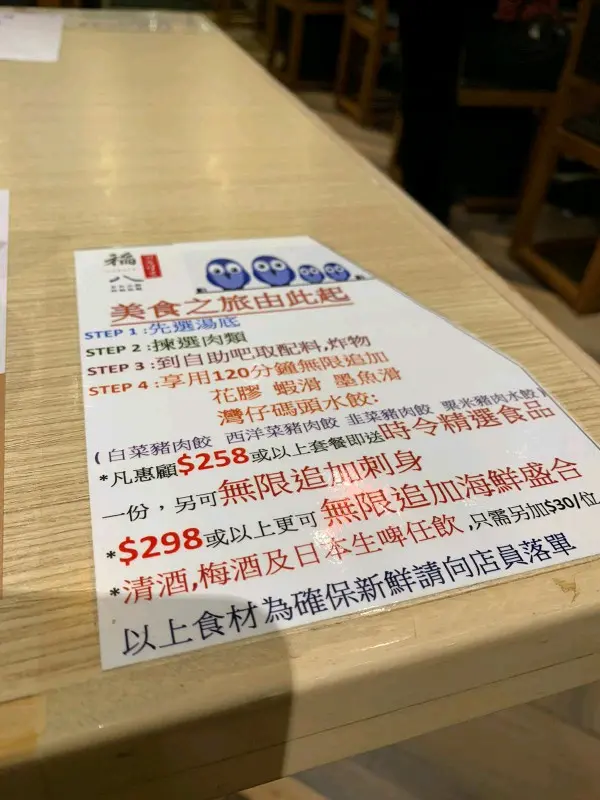 福
八
美食之旅由此起
STEP 1 :先選湯底
STEP 2 :揀選肉類
STEP 3 :到自助吧取配料,炸物
STEP 4 :享用120分鐘無限追加
花膠 蝦滑 墨魚滑
灣仔碼頭水餃:
(白菜豬肉餃 西洋菜豬肉餃 韭菜豬肉餃 粟米豬肉水餃)
*凡惠顧$258或以上套餐即送時令精選食品
一份，另可無限追加刺身
*$298或以上更可無限追加海鮮盛合
*清酒,梅酒及日本生啤任飲,只需另加$30/位
以上食材為確保新鮮請向店員落單